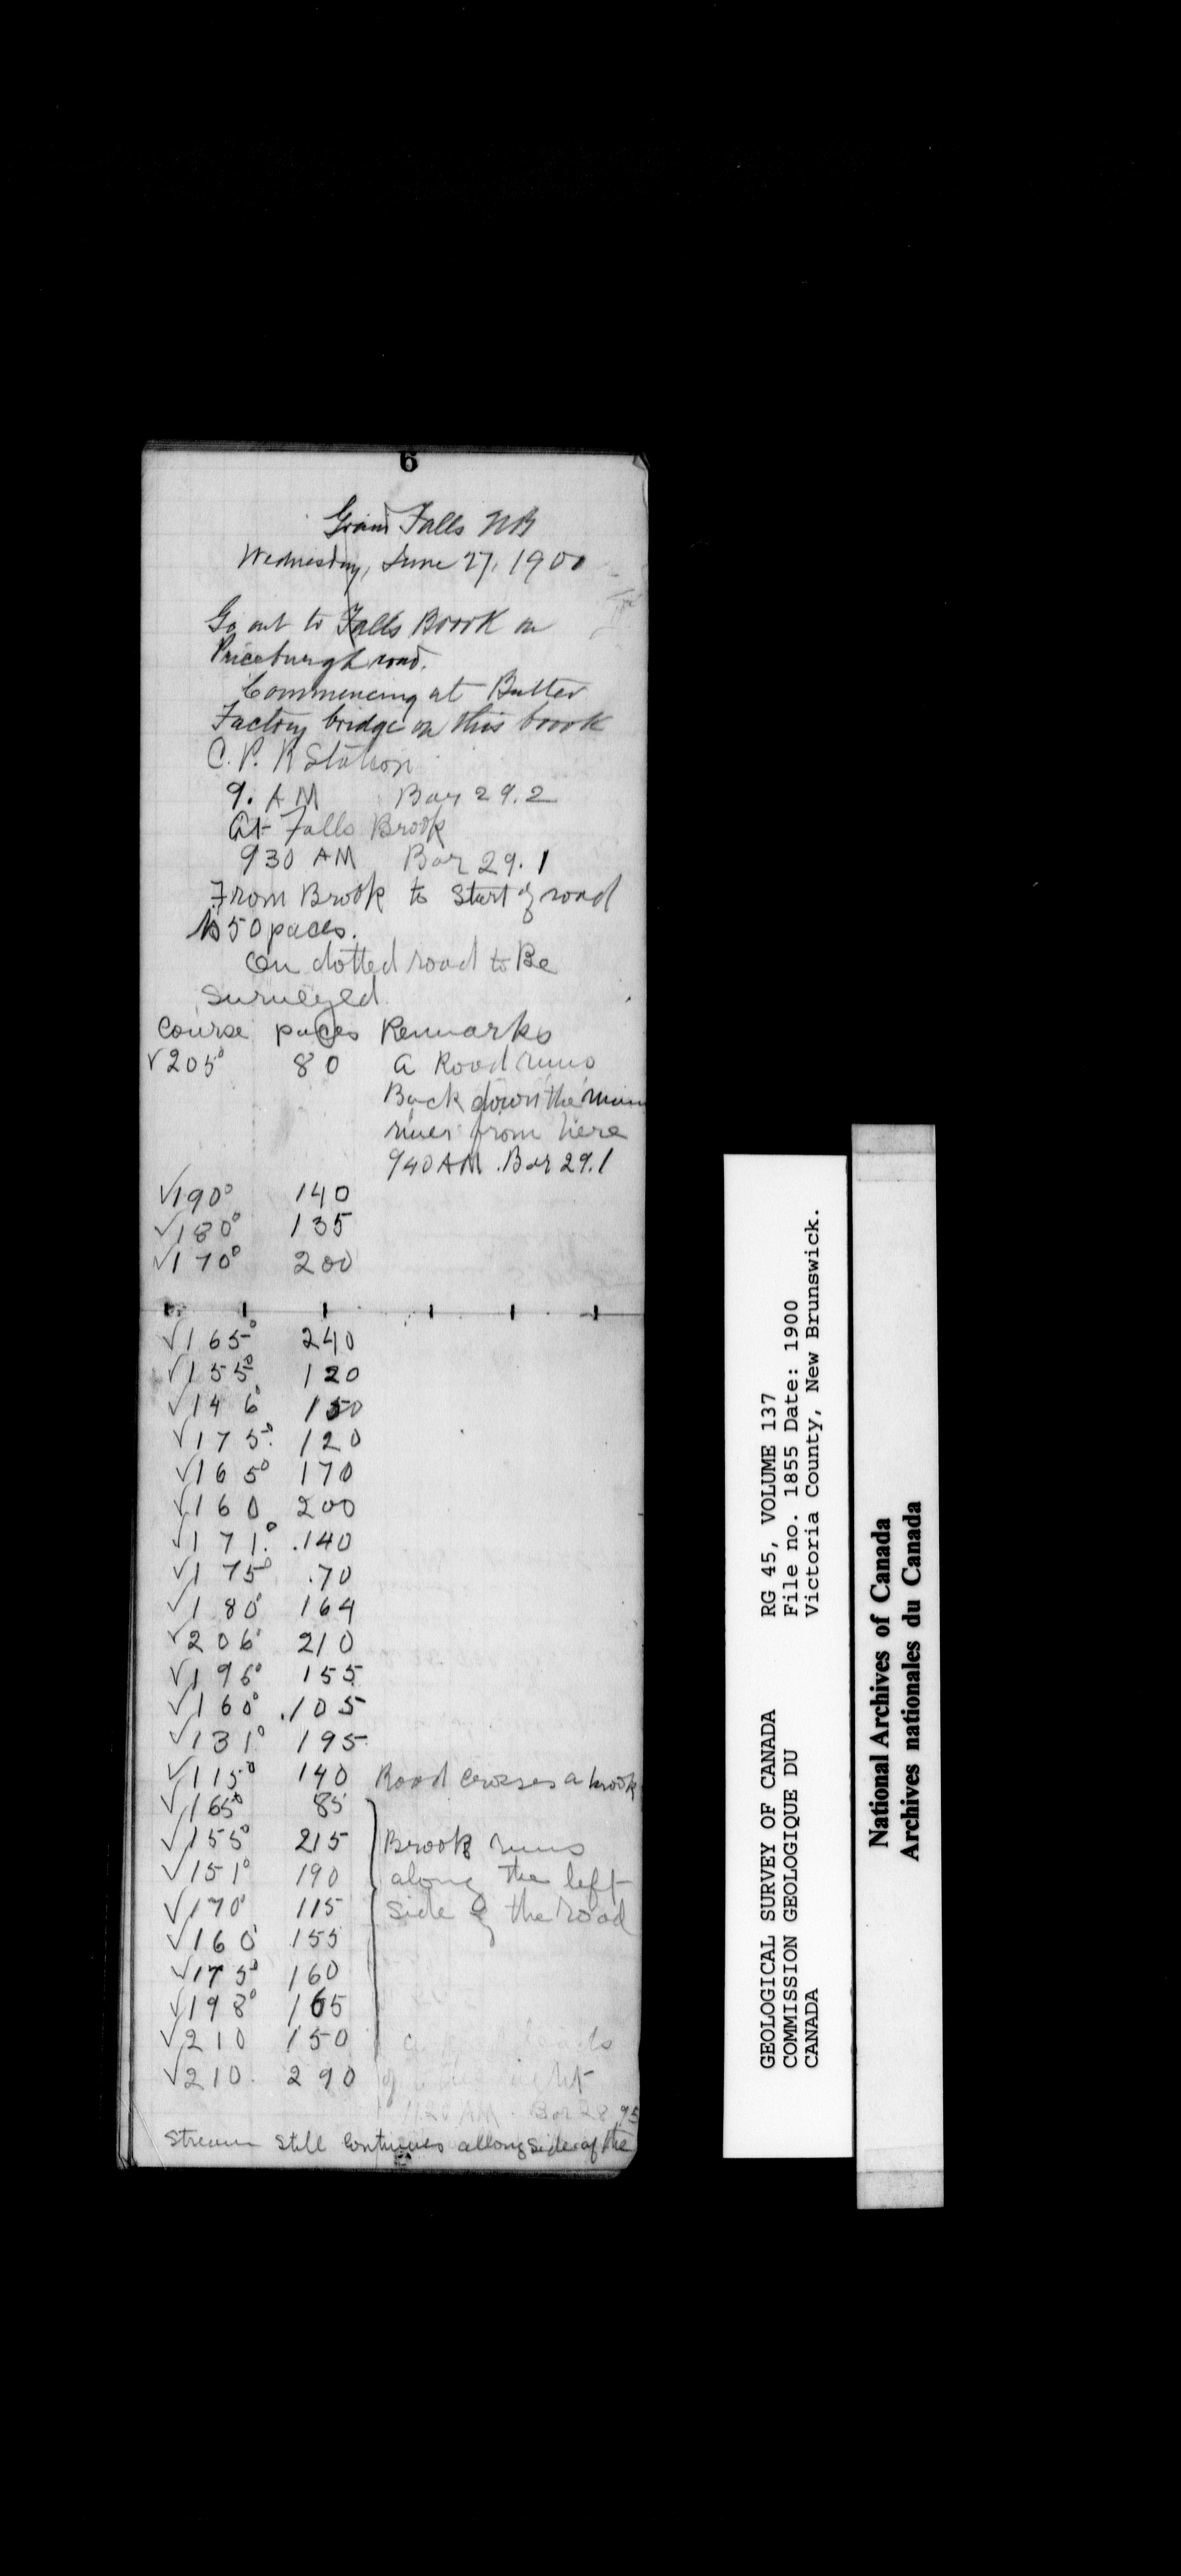 6
Grand Falls NB
Wednesday, June 27, 1900
Go out to Falls Brook on
Priceburgh road.
Commencing at Butter
Factory bridge on this brook
C. P. R Station
9. AM Bar 29.2
At Falls Brook
930 AM Bar 29.1
From Brook to Start of road
is 50 paces.
On dotted road to Be
Surveyed
Course paces Remarks
√205° 80 A Road runs
Back down the main
river from here
940 AM. Bar 29.1
√190° 140
√180° 135
√170° 200
√165° 240
√155° 120
√146° 150
√175° 120
√165° 170
√160 200
√171.° 140
√175° 70
√180° 164
√206° 210
√195° 155
√160° 105
√131° 195
√115° 140 Road Crosses a brook
√165° 85
√155° 215 Brook runs
√151° 190 along the left
√170° 115 Side of the road
√160° 155
√175° 160
√198° 165
√210 150
√210. 290
1120 AM. Bar 28.95
Stream Still Continues allong Side of the
GEOLOGICAL SURVEY OF CANADA RG 45, VOLUME 137
COMMISSION GEOLOGIQUE DU File no. 1855 Date: 1900
CANADA Victoria County, New Brunswick.
National Archives of Canada
Archives nationales du Canada